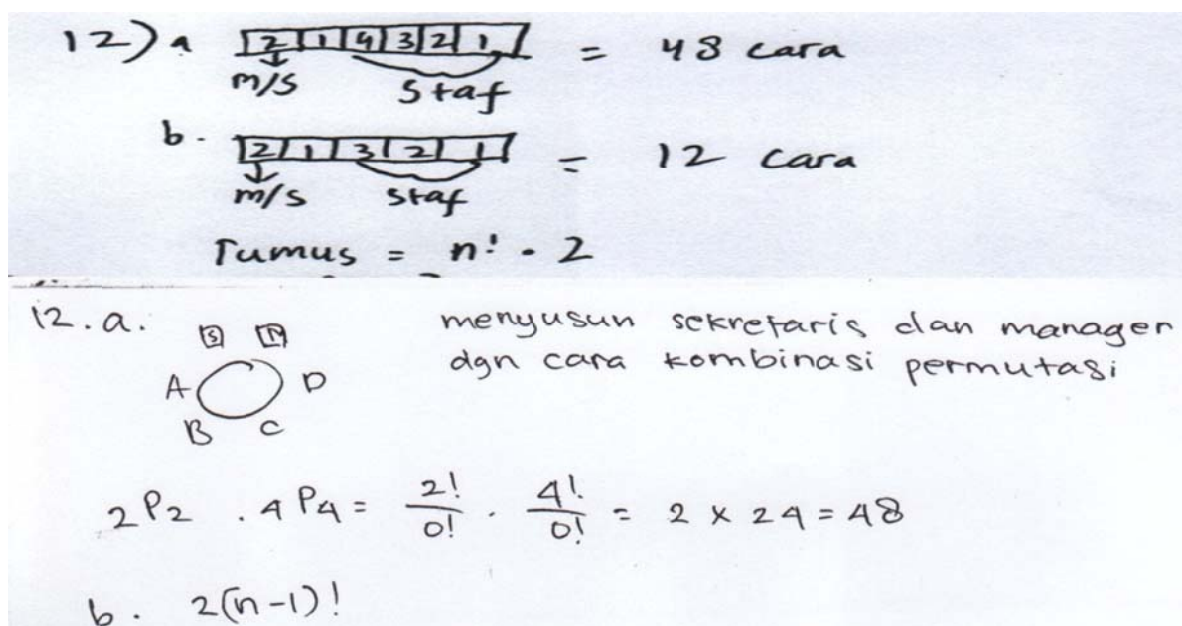 12) a 2 1 4 3 2 1 = 48 cara
m/s staf
b. 2 1 3 2 1 = 12 cara
m/s staf
Rumus = n! . 2
12. a. S M menyusun sekretaris dan manager
A D dgn cara kombinasi permutasi
B C
2P2 . 4P4 = 2!/0! . 4!/0! = 2 x 24 = 48
b. 2(n-1)!